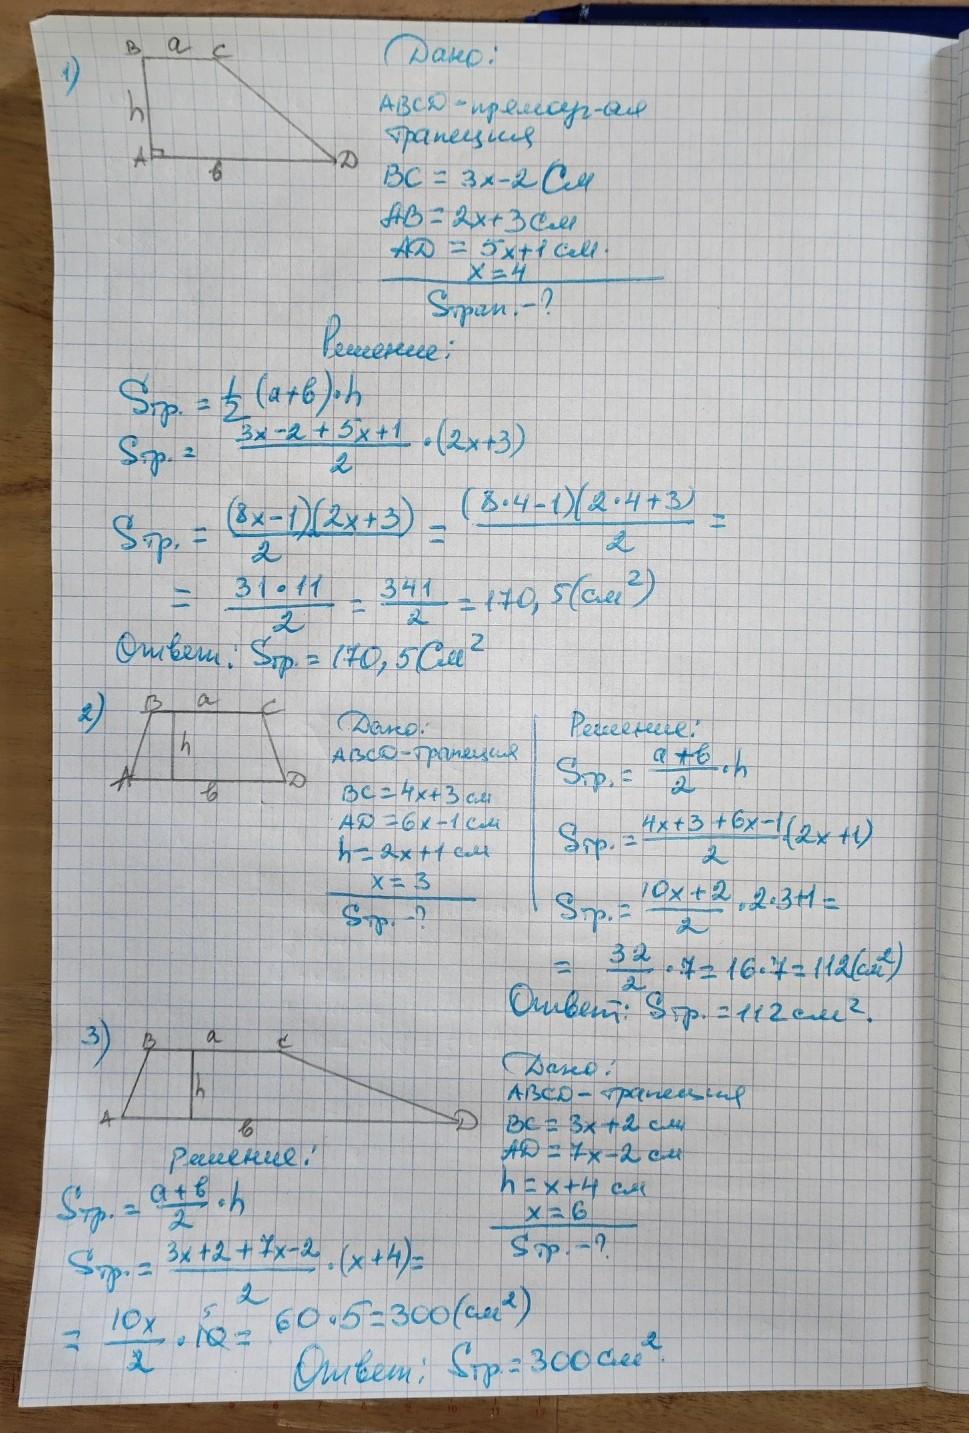 1)
B a C
h
A b D
Дано:
ABCD - прямоуг-ая
трапеция
BC = 3x-2 см
AB = 2x+3 см
AD = 5x+1 см.
x = 4
Sтрап. - ?
Решение:
Sтр. = 1/2 (a+b)·h
Sтр. = (3x-2+5x+1)/2 · (2x+3)
Sтр. = (8x-1)(2x+3)/2 = (8·4-1)(2·4+3)/2 =
= 31·11/2 = 341/2 = 170,5 (см²)
Ответ: Sтр. = 170,5 см²
2)
B a C
h
A b D
Дано:
ABCD - трапеция
BC = 4x+3 см
AD = 6x-1 см
h = 2x+1 см
x = 3
Sтр. - ?
Решение:
Sтр. = (a+b)/2 · h
Sтр. = (4x+3+6x-1)/2 · (2x+1)
Sтр. = (10x+2)/2 · 2·3+1 =
= 32/2 · 7 = 16·7 = 112 (см²)
Ответ: Sтр. = 112 см².
3)
B a C
h
A b D
Дано:
ABCD - трапеция
BC = 3x+2 см
AD = 7x-2 см
h = x+4 см
x = 6
Sтр. - ?
Решение:
Sтр. = (a+b)/2 · h
Sтр. = (3x+2+7x-2)/2 · (x+4) =
= 10x/2 · 10 5 = 60·5 = 300 (см²)
Ответ: Sтр. = 300 см².